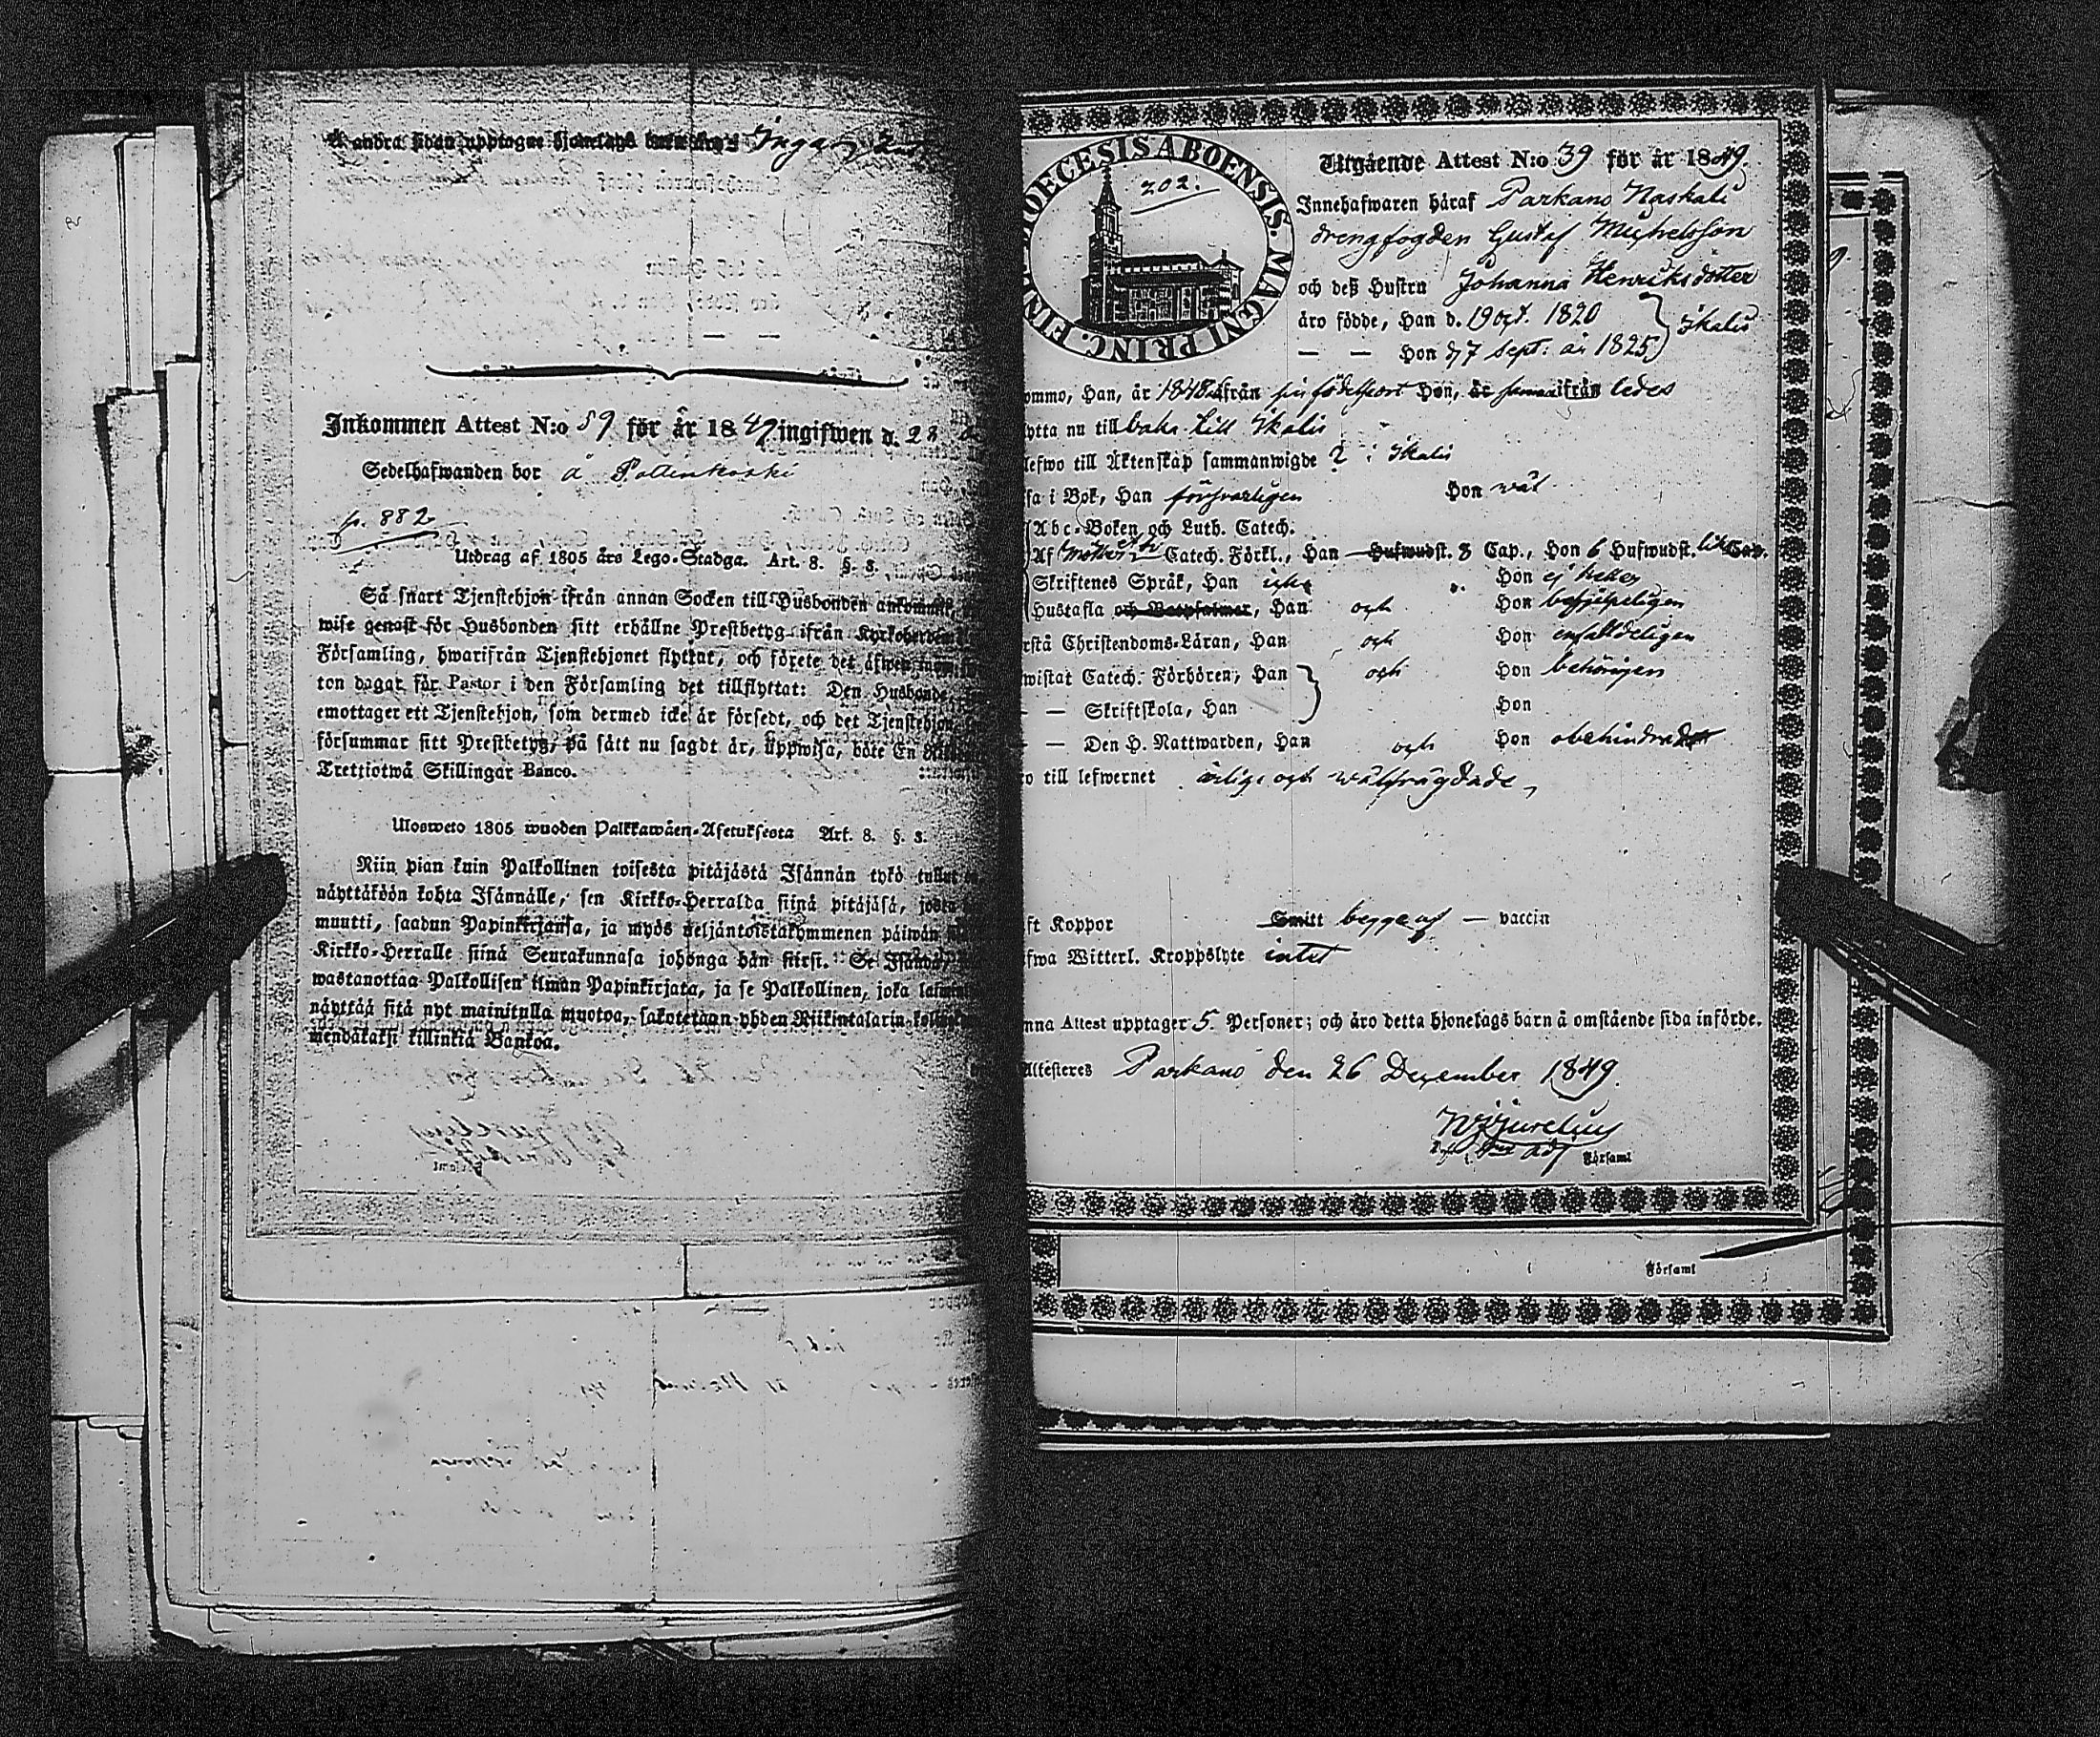 Å andra sidan upptagne hjonelags barn äro: Inga
Inkommen Attest N:o 59 för år 1849 ingifwen d. 28
Sedelhafwanden bor å Poltinkoski
p. 882
Utdrag af 1805 års Lego-Stadga. Art. 8. §. 3.
Så snart Tjenstehjon ifrån annan Socken till Husbonden ankommit,
wise genast för Husbonden sitt erhållne Prestbetyg ifrån Kyrkoherden
Församling, hwarifrån Tjenstehjonet flyttat, och förete det äfwen inom
ton dagar för Pastor i den Församling det tillflyttat: Den Husbonde,
emottager ett Tjenstehjon, som dermed icke är försedt, och det Tjenstehjon,
försummar sitt Prestbetyg, på sätt nu sagdt är, uppwisa, böte En
Trettiotwå Skillingar Banco.
Ulosweto 1805 wuoden Palkkawäen-Asetuksesta Art. 8. §. 3.
Niin pian kuin Palkollinen toisesta pitäjästä Isännän tykö tullut
näyttäköön kohta Isännälle, sen Kirkko-Herralda siinä pitäjäsä, josta
muutti, saadun Papinkirjansa, ja myös neljäntoistakymmenen päiwän
Kirkko-Herralle siinä Seurakunnasa johonga hän siirsi. Se Isändä,
wastanottaa Palkollisen ilman Papinkirjata, ja se Palkollinen, joka
näyttää sitä nyt mainitulla muotoa, sakotetaan yhden Riikintalarin
mendäkaksi killinkiä Bankoa.
DIOECESIS ABOENSIS. MAGNI PRINC. FINL.
202.
Utgående Attest N:o 39 för år 1849
Innehafwaren häraf Parkano Naskali
drengfogden Gustaf Michelsson
och deß Hustru Johanna Henriksdotter
äro födde, Han d. 19 oct. 1820
— — Hon d. 7 sept: år 1825 } Ikalis
ommo, Han, år 1848 ifrån sin födelseort Hon, är samma ifrån ledes
ytta nu tillbaka till Ikalis
lefwo till Äktenskap sammanwigde 2 i Ikalis
sa i Bok, Han försvarligen Hon wäl
Abc-Boken och Luth. Catech.
Af Catech. Förkl., Han Hufwudst. 3 Cap., Hon 6 Hufwudst. Cap.
Skriftenes Språk, Han icke Hon ej heller
Hustafla och Botpsalmer, Han och Hon
rstå Christendoms-Läran, Han och Hon enfaldeligen
wistat Catech. Förhören, Han och Hon behörigen
— — Skriftskola, Han Hon
— — Den H. Nattwarden, Han och Hon obehindrade
o till lefwernet ärlige och wälfrägdade,
ft Koppor Smitt begge af — vaccin
fwa Witterl. Kroppslyte intet
nna Attest upptager 5 Personer; och äro detta hjonelags barn å omstående sida införde.
Attesteres Parkano den 26 December 1849.
Församl
Församl